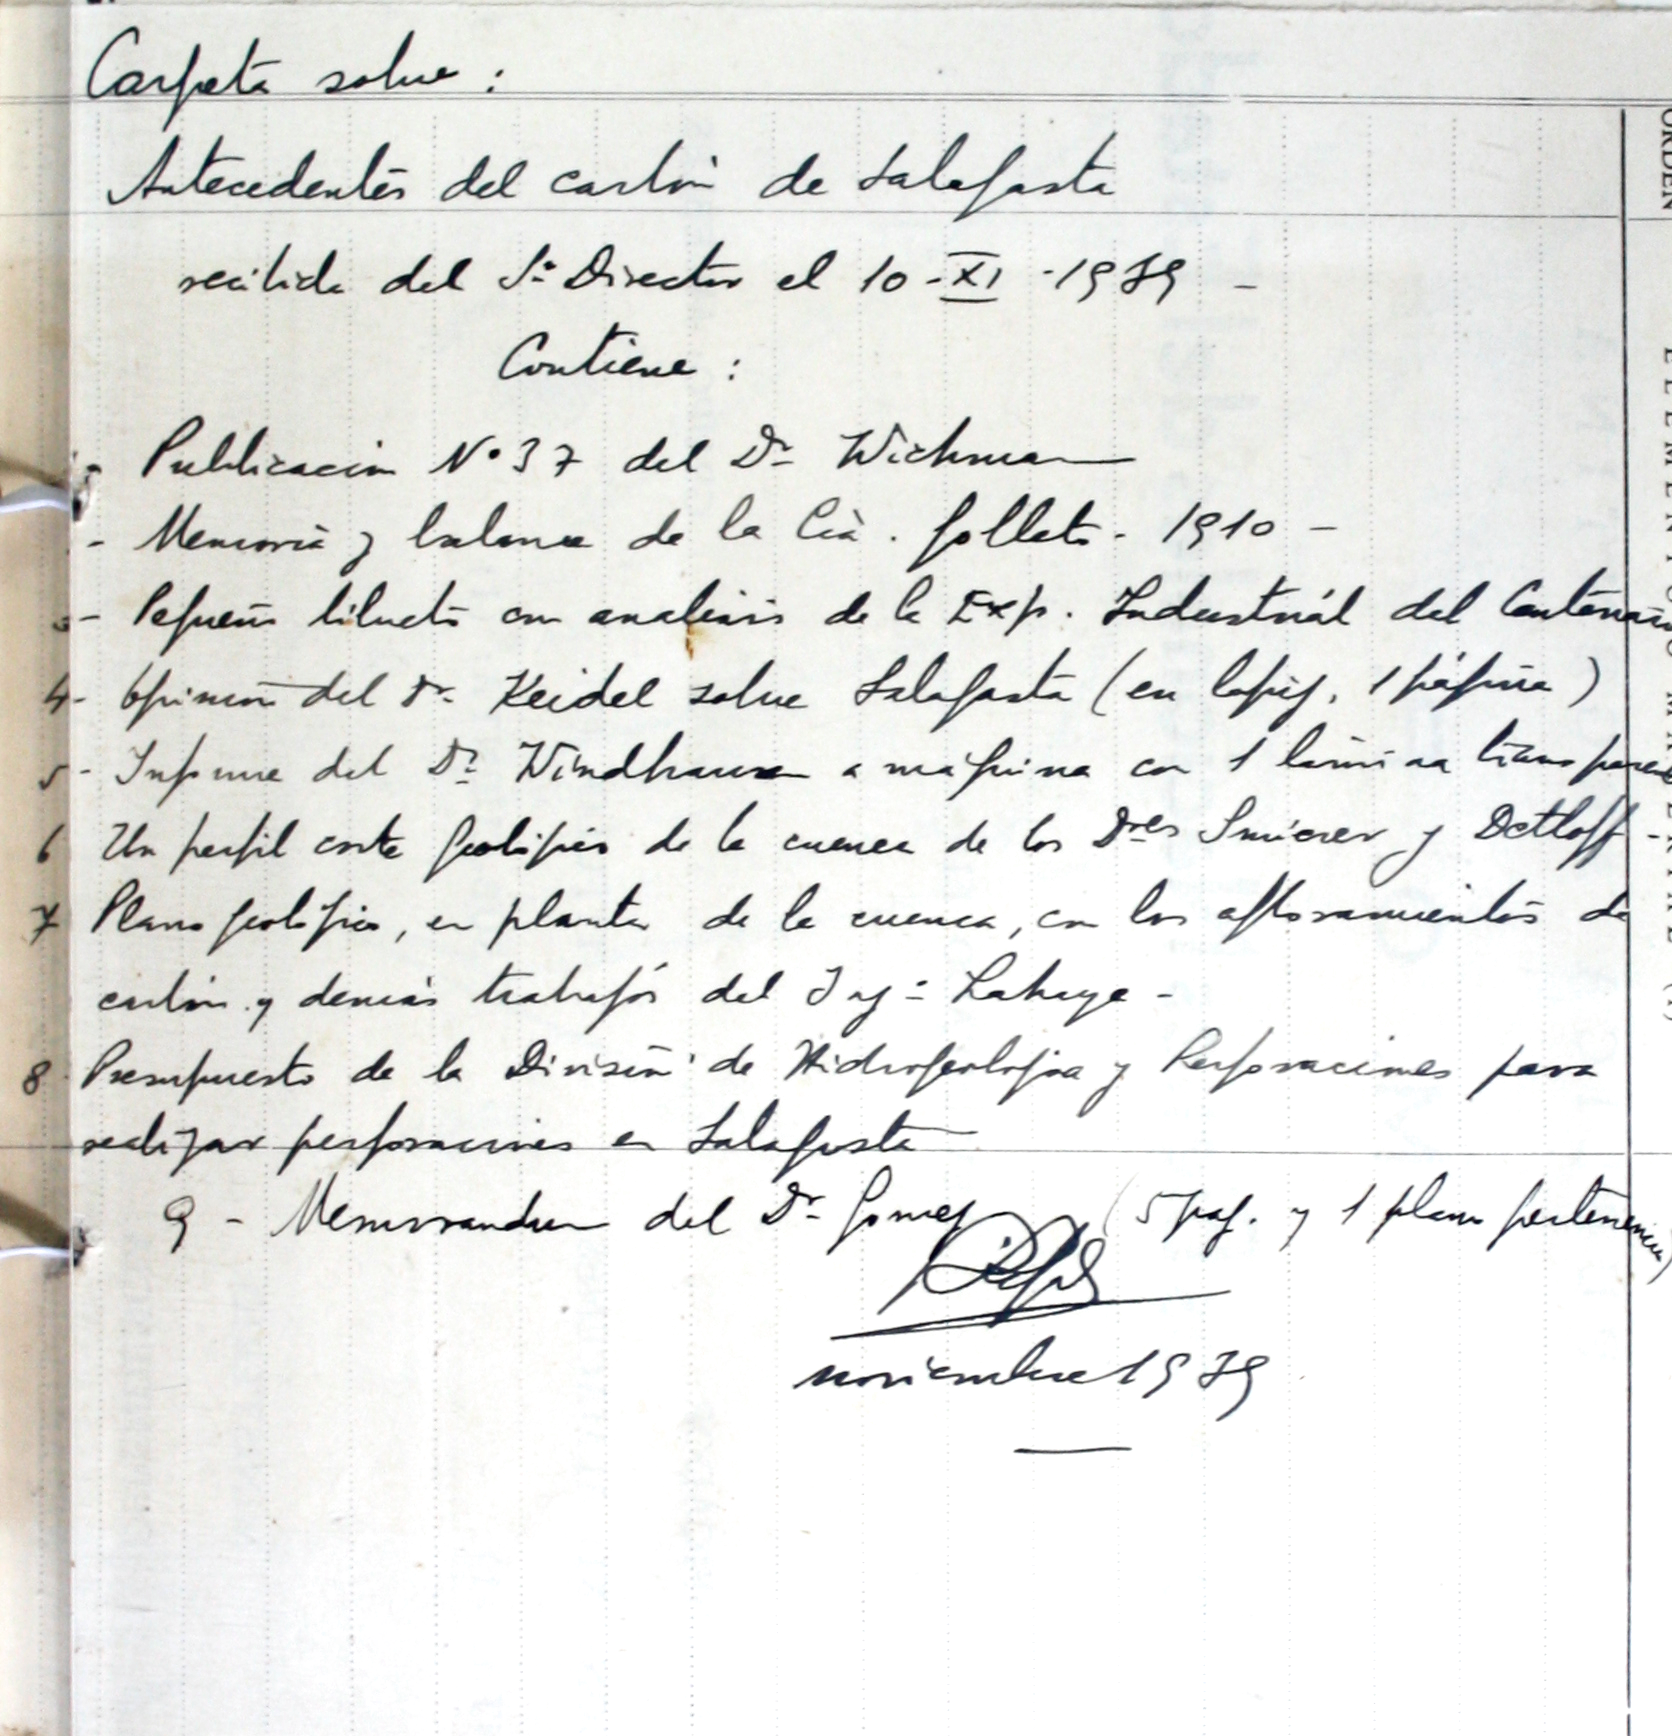 Carpeta sobre :
Antecedentes del carbón de Salagasta
recibida del Sr. Director el 10-XI-1939 -
Contiene :
- Publicacion Nº 37 del Dr. Wichman
- Memoria y balance de la Cía. folleto - 1910 -
3 - Pequeño librito con analisis de la Exp. Industrial del Centenario
4 - Opinion del Dr. Keidel sobre Salagasta (en lapiz, 1 página)
5 - Informe del Dr. Windhausen a maquina con 1 lámina transparente
6 Un perfil corte geológico de la cuenca de los Dres y Dettloff -
7 Plano geológico, en planta de la cuenca, con los afloramientos de
carbón y demás trabajos del Ing. Lahaye -
8 Presupuesto de la División de Hidrogeologia y Perforaciones para
realizar perforaciones en Salagasta
9 - Memorandum del Dr. Gomez (5 pag. y 1 plano pertenencia)
noviembre 1939
ORDEN